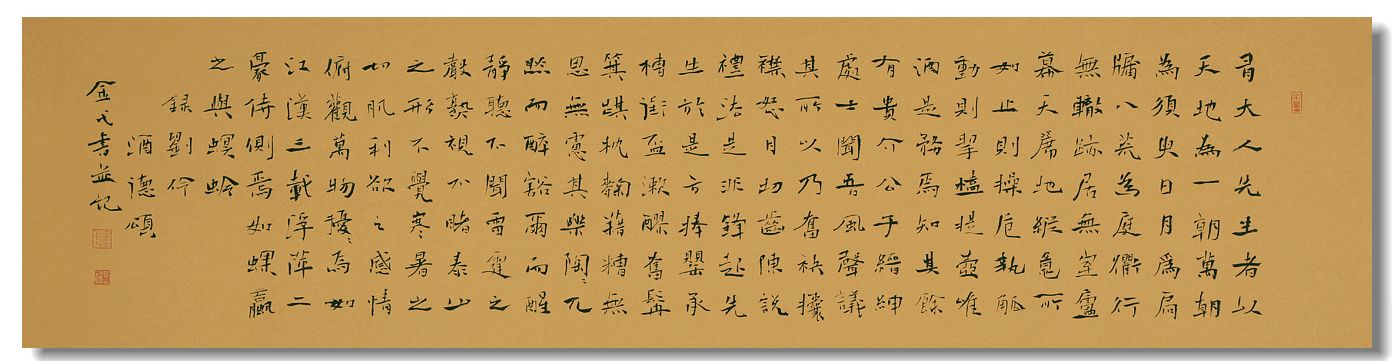 有大人先生者以
天地為一朝萬朝
為須臾日月為扃
牖八荒為庭衢行
無轍跡居無室廬
幕天席地縱意所
如止則操卮執觚
動則挈榼提壺唯
酒是務焉知其餘
有貴介公子縉紳
處士聞吾風聲議
其所以乃奮袂攘
襟怒目切齒陳說
禮法是非鋒起先
生於是方捧罌承
槽銜盃漱醪奮髯
箕踞枕麴藉糟無
思無慮其樂陶〻兀
然而醉豁爾而醒
靜聽不聞雷霆之
聲熟視不睹泰山
之形不覺寒暑之
切肌利欲之感情
俯觀萬物擾〻焉如
江漢三載浮萍二
豪侍側焉如蜾蠃
之與螟蛉
録劉伶
酒德頌
金弋書並記